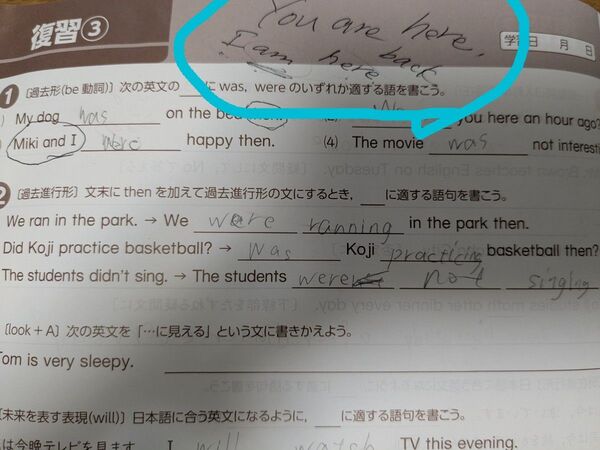 復習③
You are here.
I am back
here
学習日 月 日
1 〔過去形(be 動詞)〕次の英文の___に was, were のいずれか適する語を書こう。
My dog was on the bed then. (2) you here an hour ago?
Miki and I were happy then. (4) The movie was not interesti
2 〔過去進行形〕文末に then を加えて過去進行形の文にするとき，___に適する語句を書こう。
We ran in the park. → We were ranning in the park then.
Did Koji practice basketball? → Was Koji practicing basketball then?
The students didn't sing. → The students were not singing
〔look + A〕次の英文を「…に見える」という文に書きかえよう。
Tom is very sleepy.
〔未来を表す表現(will)〕日本語に合う英文になるように，___に適する語句を書こう。
は今晩テレビを見ます。 I will watch TV this evening.